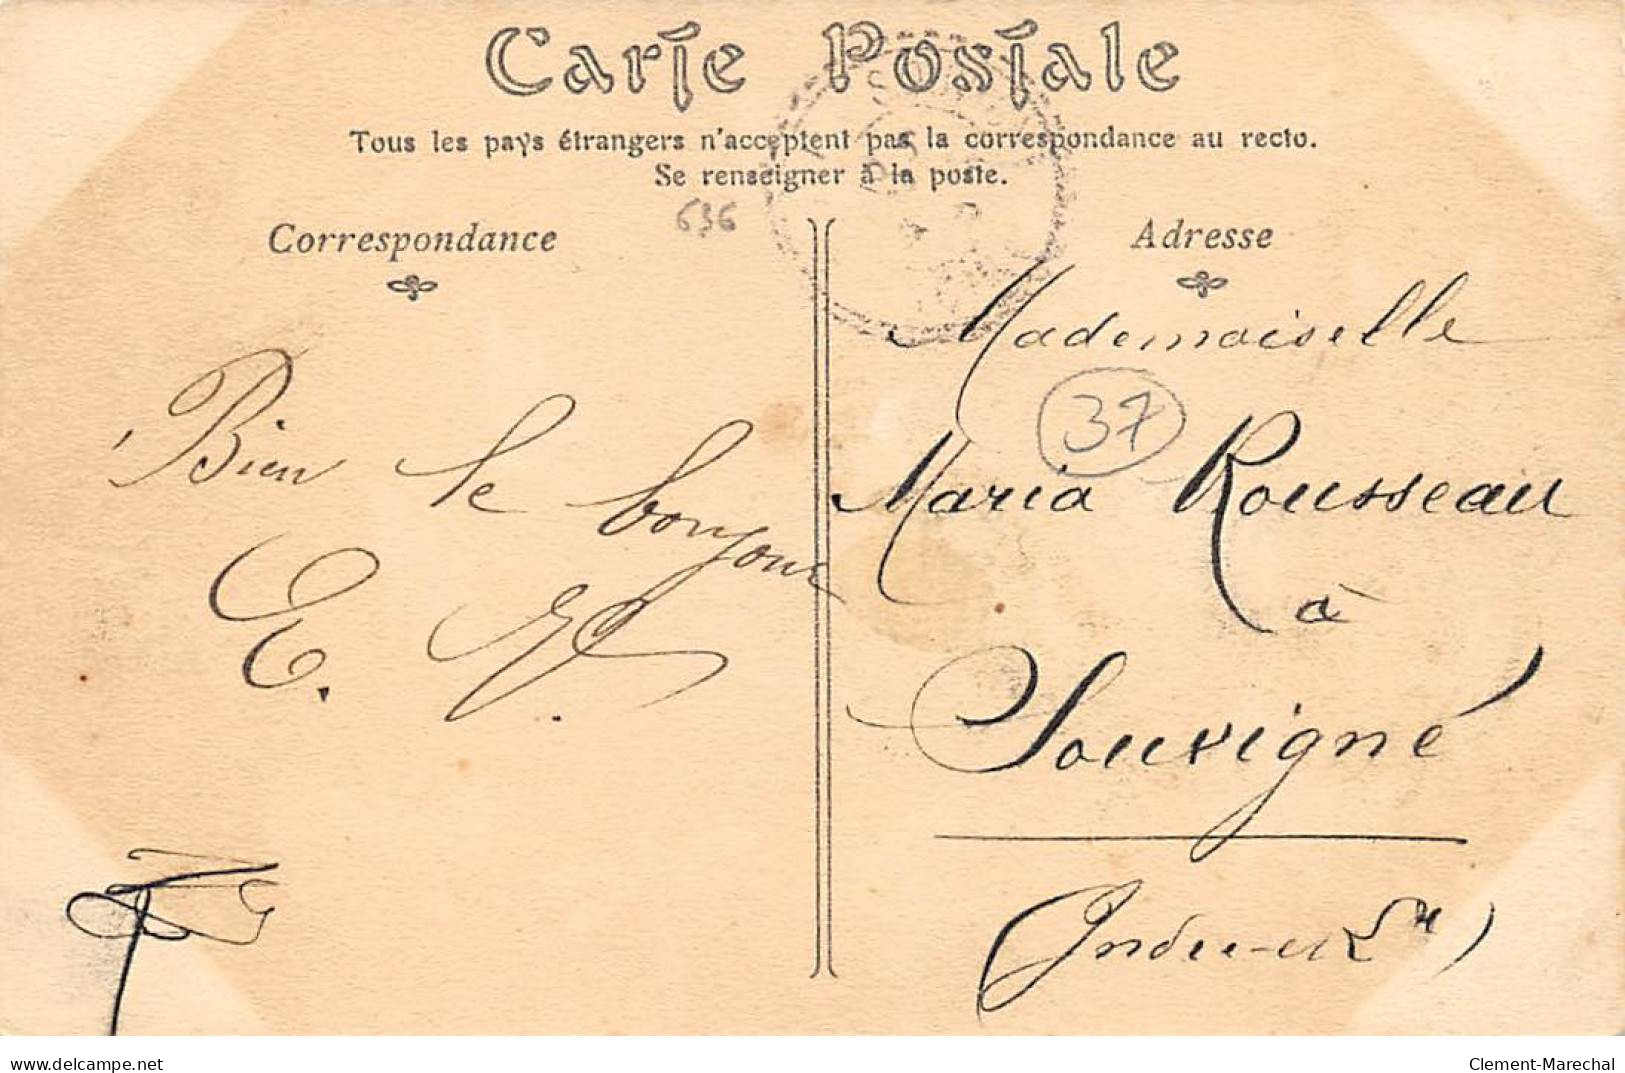 Carte Postale
Tous les pays étrangers n'acceptent pas la correspondance au recto.
Se renseigner à la poste.
636
Correspondance
Adresse
Bien le bonjour
E.
Mademoiselle
37
Maria Rousseau
à
Souvigné
(Indre-et-Lre)
delcampe.net
Clement-Marechal